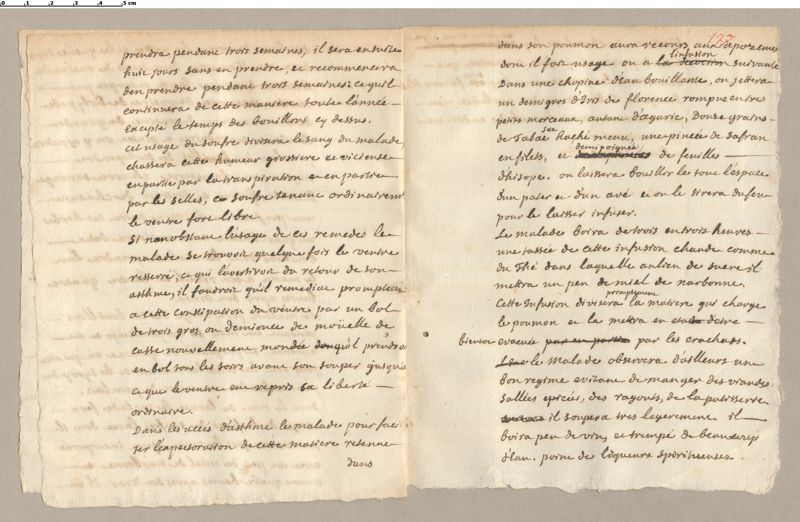 prendra pendant trois semaines, il sera ensuite
huit jours sans en prendre, et recommencera
d'en prendre pendant trois semaines: ce qu'il
continuera de cette maniere toute l'année
Excepté le temps des bouillons cy dessus.
cet usage du soufre divisera le sang du malade,
chassera cette humeur grossiere et vicieuse
en partie par la transpiration et en partie
par les selles, ce soufre tenant ordinairement
le ventre fort libre.
Si nonobstant l'usage de ces remedes le
malade se trouvoit quelque fois le ventre
resserré, ce qui l'avertiroit du retour de son
asthme, il faudroit qu'il remediat promptement
a cette constipation du ventre par un bol
de trois gros ou demionce de moüelle de
casse nouvellement mondée qu'il prendroit
en bol tous les soirs avant son souper jusqu'a
ce que le ventre eut repris sa liberté
ordinaire.
Dans les accès d'asthme le malade pour faci
ter l'expectoration de cette matiere retenue
dans
dans son poumon aura recours aux apozemes
l'infusion
dont il fait usage ou a la decoction suivante
Dans une chopine d'eau bouillante, on jettera
un demi gros d'Iris de florence rompu entre
petits morceaux, autant d'agaric, Douze grains
de Tabac haché menu, une pincée de Safran
demi poignée
en filets, et de feuilles
d'hisope. on laissera bouillir le tout l'espace
d'un pater et d'un avé et on le tirera du feu
pour le laisser infuser.
Le malade boira de trois en trois heures
une tassée de cette infusion chaude comme
du Thé dans laquelle au lieu de sucre il
mettra un peu de miel de narbonne.
promptement
Cette Infusion divisera la matiere qui charge
le poumon et la mettra en etat d'etre
bientot evacuée par en partie par les crachats.
le Malade observera d'ailleurs un
bon regime evitant de manger des viandes
Sallées epicées, des ragouts, de la patisserie
il soupera tres legerement. il
boira peu de vin, et trempé de beaucoup
d'Eau. point de liqueurs spiritueuses.